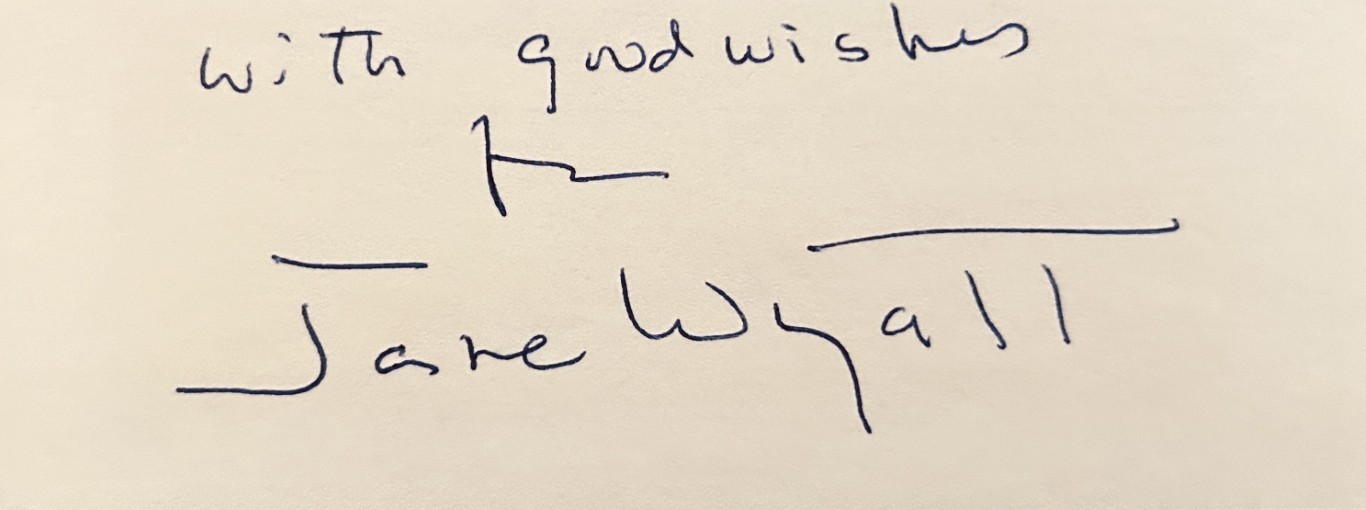 with good wishes
Jane Wyatt